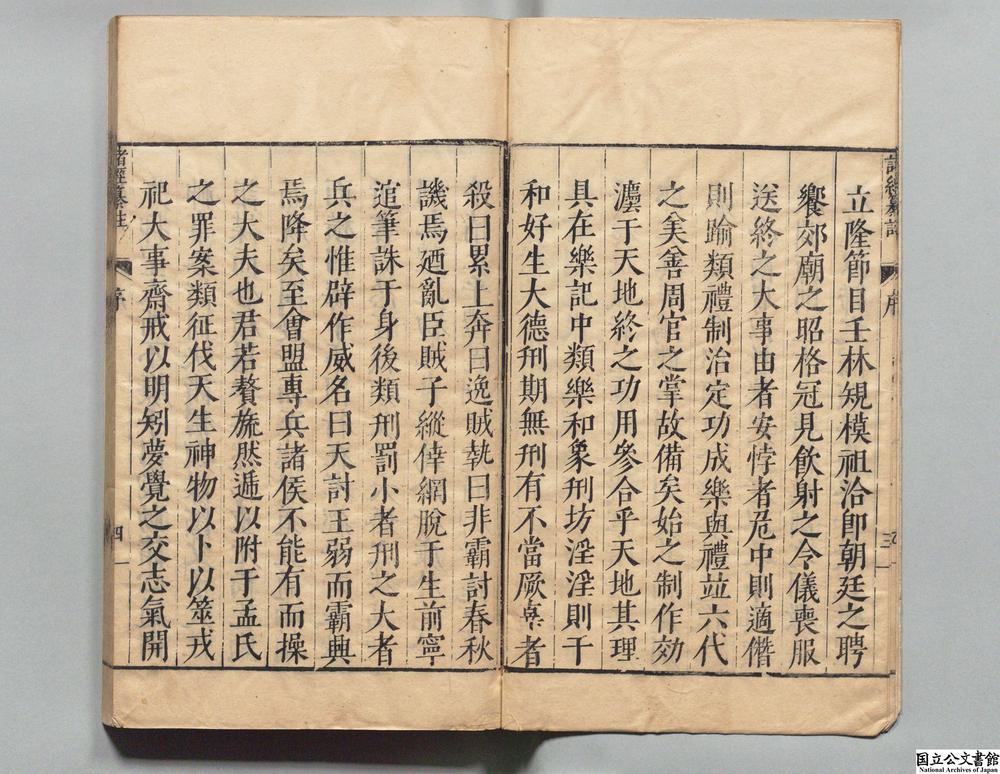 諸經纂註
序
三
立隆節目壬林規模祖洽卽朝廷之聘
饗郊廟之昭格冠見飲射之令儀喪服
送終之大事由者安悖者危中則適僭
則踰類禮制治定功成樂與禮竝六代
之美善周官之掌故備矣始之制作効
灋于天地終之功用參合乎天地其理
具在樂記中類樂和象刑坊淫淫則干
和好生大德刑期無刑有不當厥辜者
殺曰累上奔曰逸賊執曰非霸討春秋
譏焉廼亂臣賊子縱倖網脫于生前寧
逭筆誅于身後類刑罰小者刑之大者
兵之惟辟作威名曰天討王弱而霸興
焉降矣至會盟專兵諸侯不能有而操
之大夫也君若贅旒然遞以附于孟氏
之罪案類征伐天生神物以卜以筮戎
祀大事齋戒以明矧夢覺之交志氣開
諸經纂註
序
四
国立公文書館
National Archives of Japan